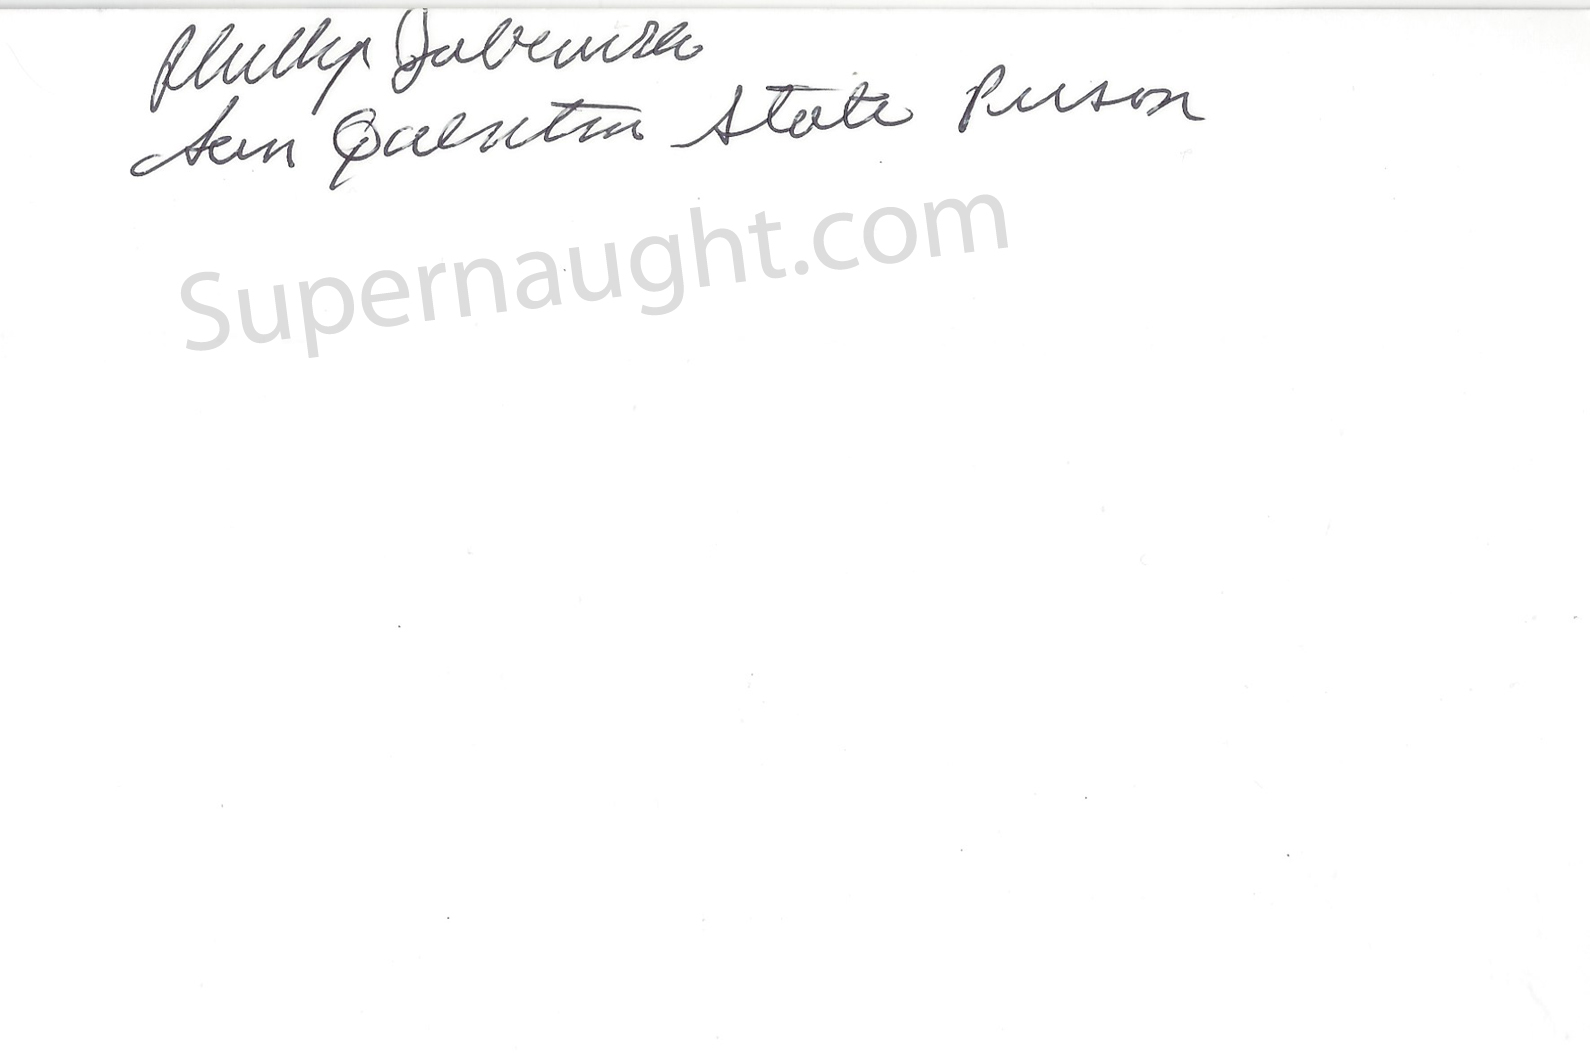 Phillip Jablonski
San Quentin State Prison
Supernaught.com